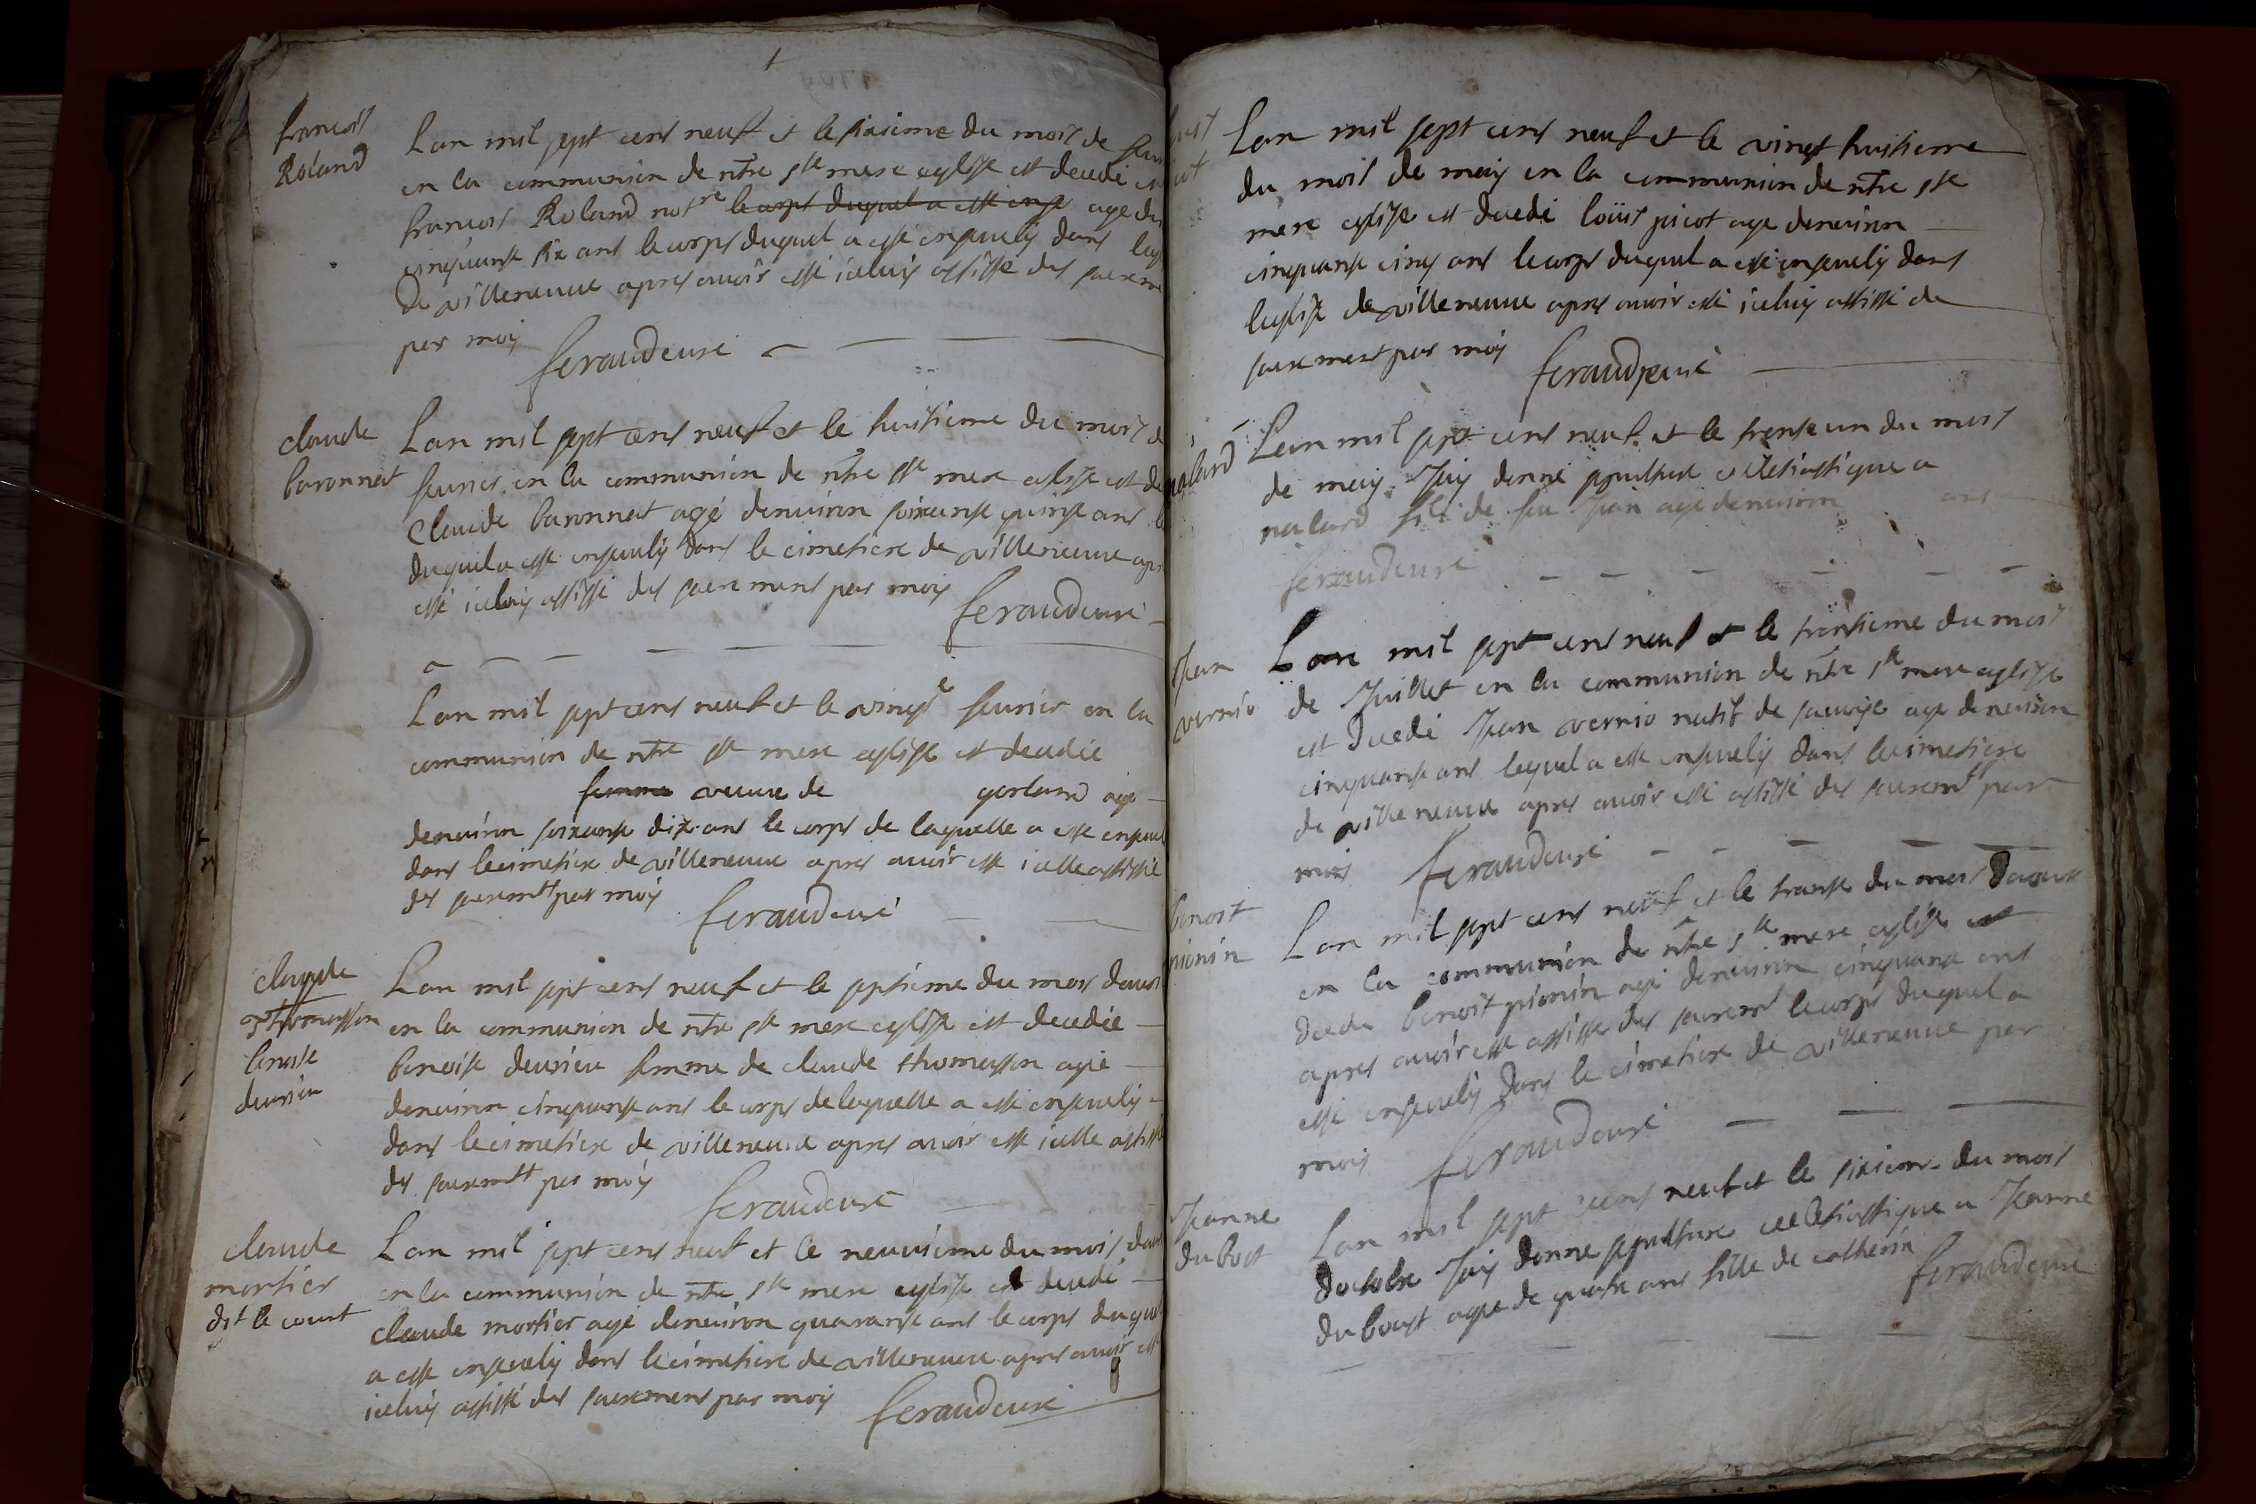 francois
Roland
Lan mil sept cens neuf et le sixieme du mois de
en la communion de ntre ste mere eglise est decedé
francois Roland notre le corps duquel a esté ense agé de
cinquante six ans le corps duquel a esté enseuely dans
de villeneuue apres auoir esté iceluy assisté des
par moy
feraud curé
claude
baronnat
Lan mil sept cens neuf et le huitieme du mois de
feurier en la communion de ntre ste mere eglise est
Claude baronnat agé denuiron soixante quinze ans
duquel a esté enseuely dans le cimetiere de villeneuue
esté iceluy assisté des sacremens par moy
feraud curé
Lan mil sept cens neuf et le vingte feurier en la
communion de ntre ste mere eglise est decedée
femme veuue de garland agé
denuiron soixante dix ans le corps de laquelle a esté
dans le cimetiere de villeneuue apres auoir esté icelle assistée
des sacremts par moy
feraud curé
claude
thomasson
benoite
deurieu
Lan mil sept cens neuf et le septieme du mois
en la communion de ntre ste mere eglise est decedée
benoite deurieu femme de claude thomasson agée
denuiron cinquante ans le corps de laquelle a esté enseuely
dans le cimetiere de villeneuue apres auoir esté icelle
des sacremts par moy
feraud curé
claude
mortier
dit le court
Lan mil sept cens neuf et le neuuieme du mois
en la communion de ntre ste mere eglise est decedé
claude mortier agé denuiron quarante ans le corps
a esté enseuely dans le cimetiere de villeneuue apres auoir esté
iceluy assisté des sacremens par moy
feraud curé
Lan mil sept cens neuf et le vingt huitieme
du mois de may en la communion de ntre ste
mere eglise est decedé loüis picot agé denuiron
cinquante cinq ans le corps duquel a esté enseuely dans
leglise de villeneuue apres auoir esté iceluy assisté de
sacremens par moy
feraud curé
nalard
Lan mil sept cens neuf et le trente un du mois
de may Jay donné sepulture eclesiastique a
nalard fils de feu Jean agé denuiron ans
feraud curé
Jean
vernio
Lan mil sept cens neuf et le trentieme du mois
de Juillet en la communion de ntre ste mere eglise
est decedé Jean vernio natif de sauoye agé denuiron
cinquante ans lequel a esté enseuely dans le cimetiere
de villeneuue apres auoir esté assisté des sacremts par
moy
feraud curé
benoit
pionin
Lan mil sept cens neuf et le trente du mois
en la communion de ntre ste mere eglise est
decedé benoit pionin agé denuiron cinquante ans
apres auoir esté assisté des sacremts le corps duquel a
esté enseuely dans le cimetiere de villeneuue par
moy
feraud curé
Jeanne
dubost
Lan mil sept cens neuf et le sixieme du mois
doctobre Jay donné sepulture ecclesiastique a Jeanne
dubost agée de quatre ans fille de catherin
feraud curé